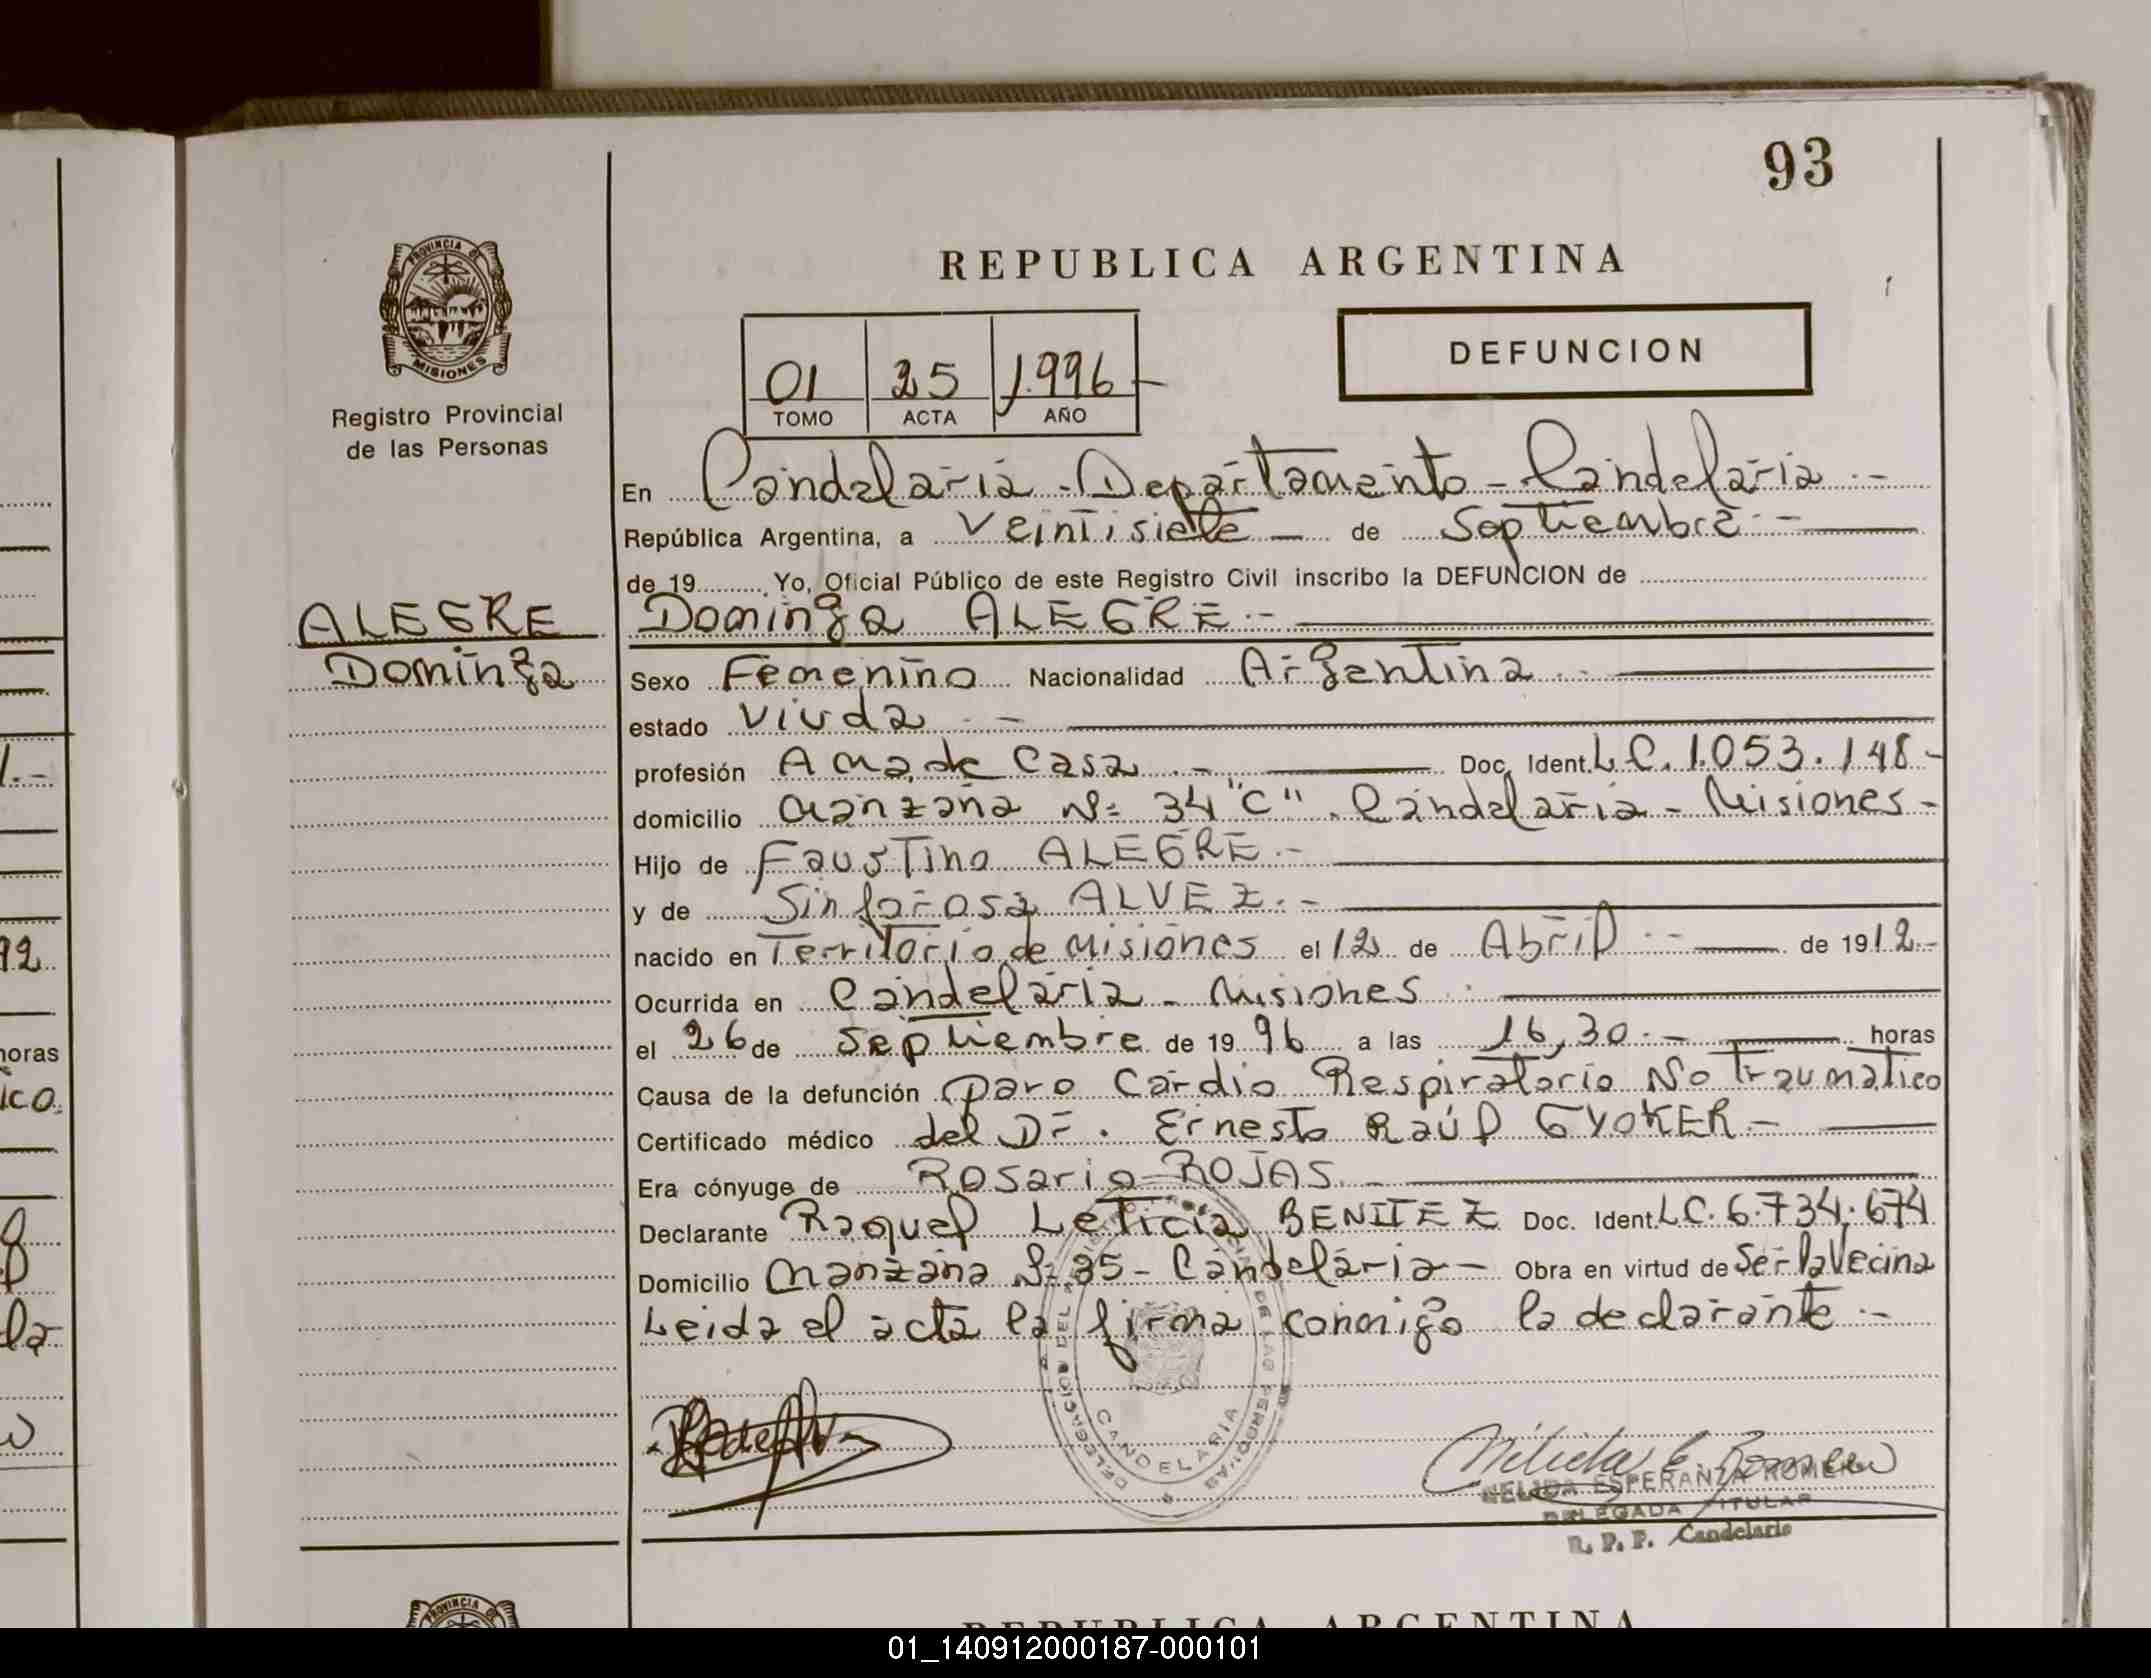 93
REPUBLICA ARGENTINA
PROVINCIA DE MISIONES
Registro Provincial
de las Personas
01 25 1.996-
TOMO ACTA AÑO
DEFUNCION
En Candelaria - Departamento - Candelaria.-
República Argentina, a veintisiete - de Septiembre.-
de 19.......... Yo, Oficial Público de este Registro Civil inscribo la DEFUNCION de
ALEGRE
Dominga
Dominga ALEGRE.-
Sexo Femenino Nacionalidad Argentina.-
estado viuda.-
profesión Ama de Casa.- Doc. Ident. L.C. 1.053.148-
domicilio manzana Nº 34 "C". Candelaria - Misiones-
Hijo de Faustino ALEGRE.-
y de Sinforosa ALVEZ.-
nacido en Territorio de Misiones el 12 de Abril.- de 1912.-
Ocurrida en Candelaria - Misiones.
el 26 de Septiembre de 1996 a las 16,30.- horas
Causa de la defunción paro Cardio Respiratorio No Traumático
Certificado médico del Dr. Ernesto Raúl GYOKER-
Era cónyuge de Rosario ROJAS.-
Declarante Raquel Leticia BENITEZ Doc. Ident. L.C. 6.734.674
Domicilio Manzana Nº 35 - Candelaria - Obra en virtud de Ser la Vecina
Leida el acta la firma conmigo la declarante.-
CANDELARIA
NELIDA ESPERANZA ROMERO
DELEGADA TITULAR
R. P. P. Candelaria
PROVINCIA DE
REPUBLICA ARGENTINA
01_140912000187-000101